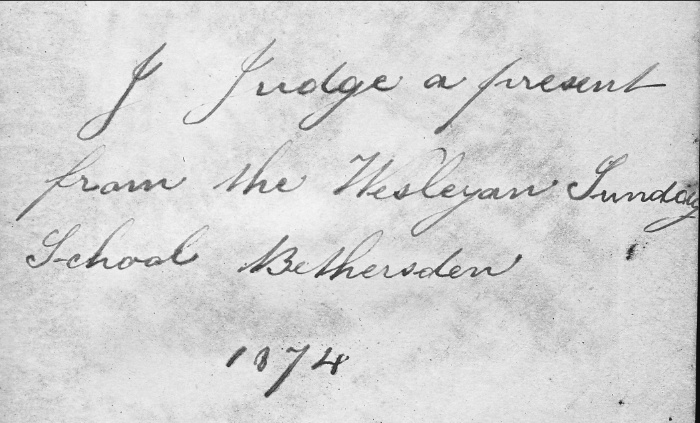 J Judge a present
from the Wesleyan Sunday
School Bethersden
1874